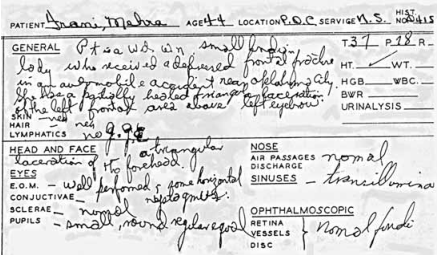 PATIENT Irani, Mehra AGE 44 LOCATION P.O.C. SERVICE N.S. HIST. NO. 5415
GENERAL Pt is a wd, wn small Indian T. 37 P 78 R-
lady who received a depressed frontal fracture HT. WT.
in an automobile accident near Oklahoma City. HGB WBC.
She has a partially healed triangular laceration BWR
of the left frontal area above left eyebrow. URINALYSIS
SKIN - neg
HAIR neg
LYMPHATICS
HEAD AND FACE a triangular NOSE
laceration of the forehead. AIR PASSAGES normal
EYES DISCHARGE
E.O.M. - well performed, some horizontal SINUSES - transillumina
CONJUCTIVAE nystagmus.
SCLERAE - normal OPHTHALMOSCOPIC
PUPILS - small, round regular equal RETINA
VESSELS normal fundi
DISC